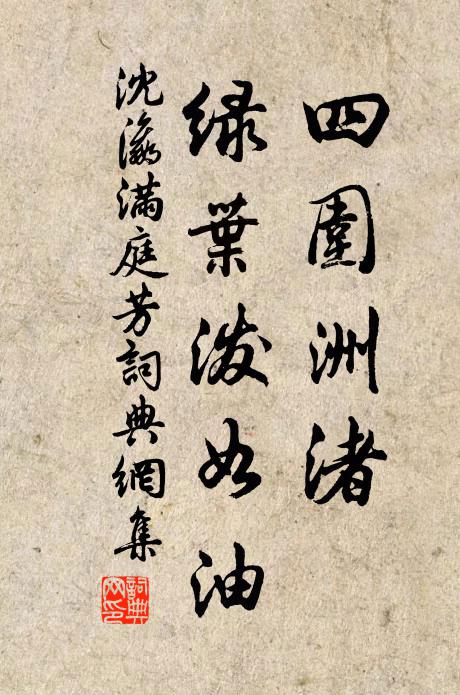 四圍洲渚
綠葉潑如油
沈瀛滿庭芳詞典網集
詞典網印